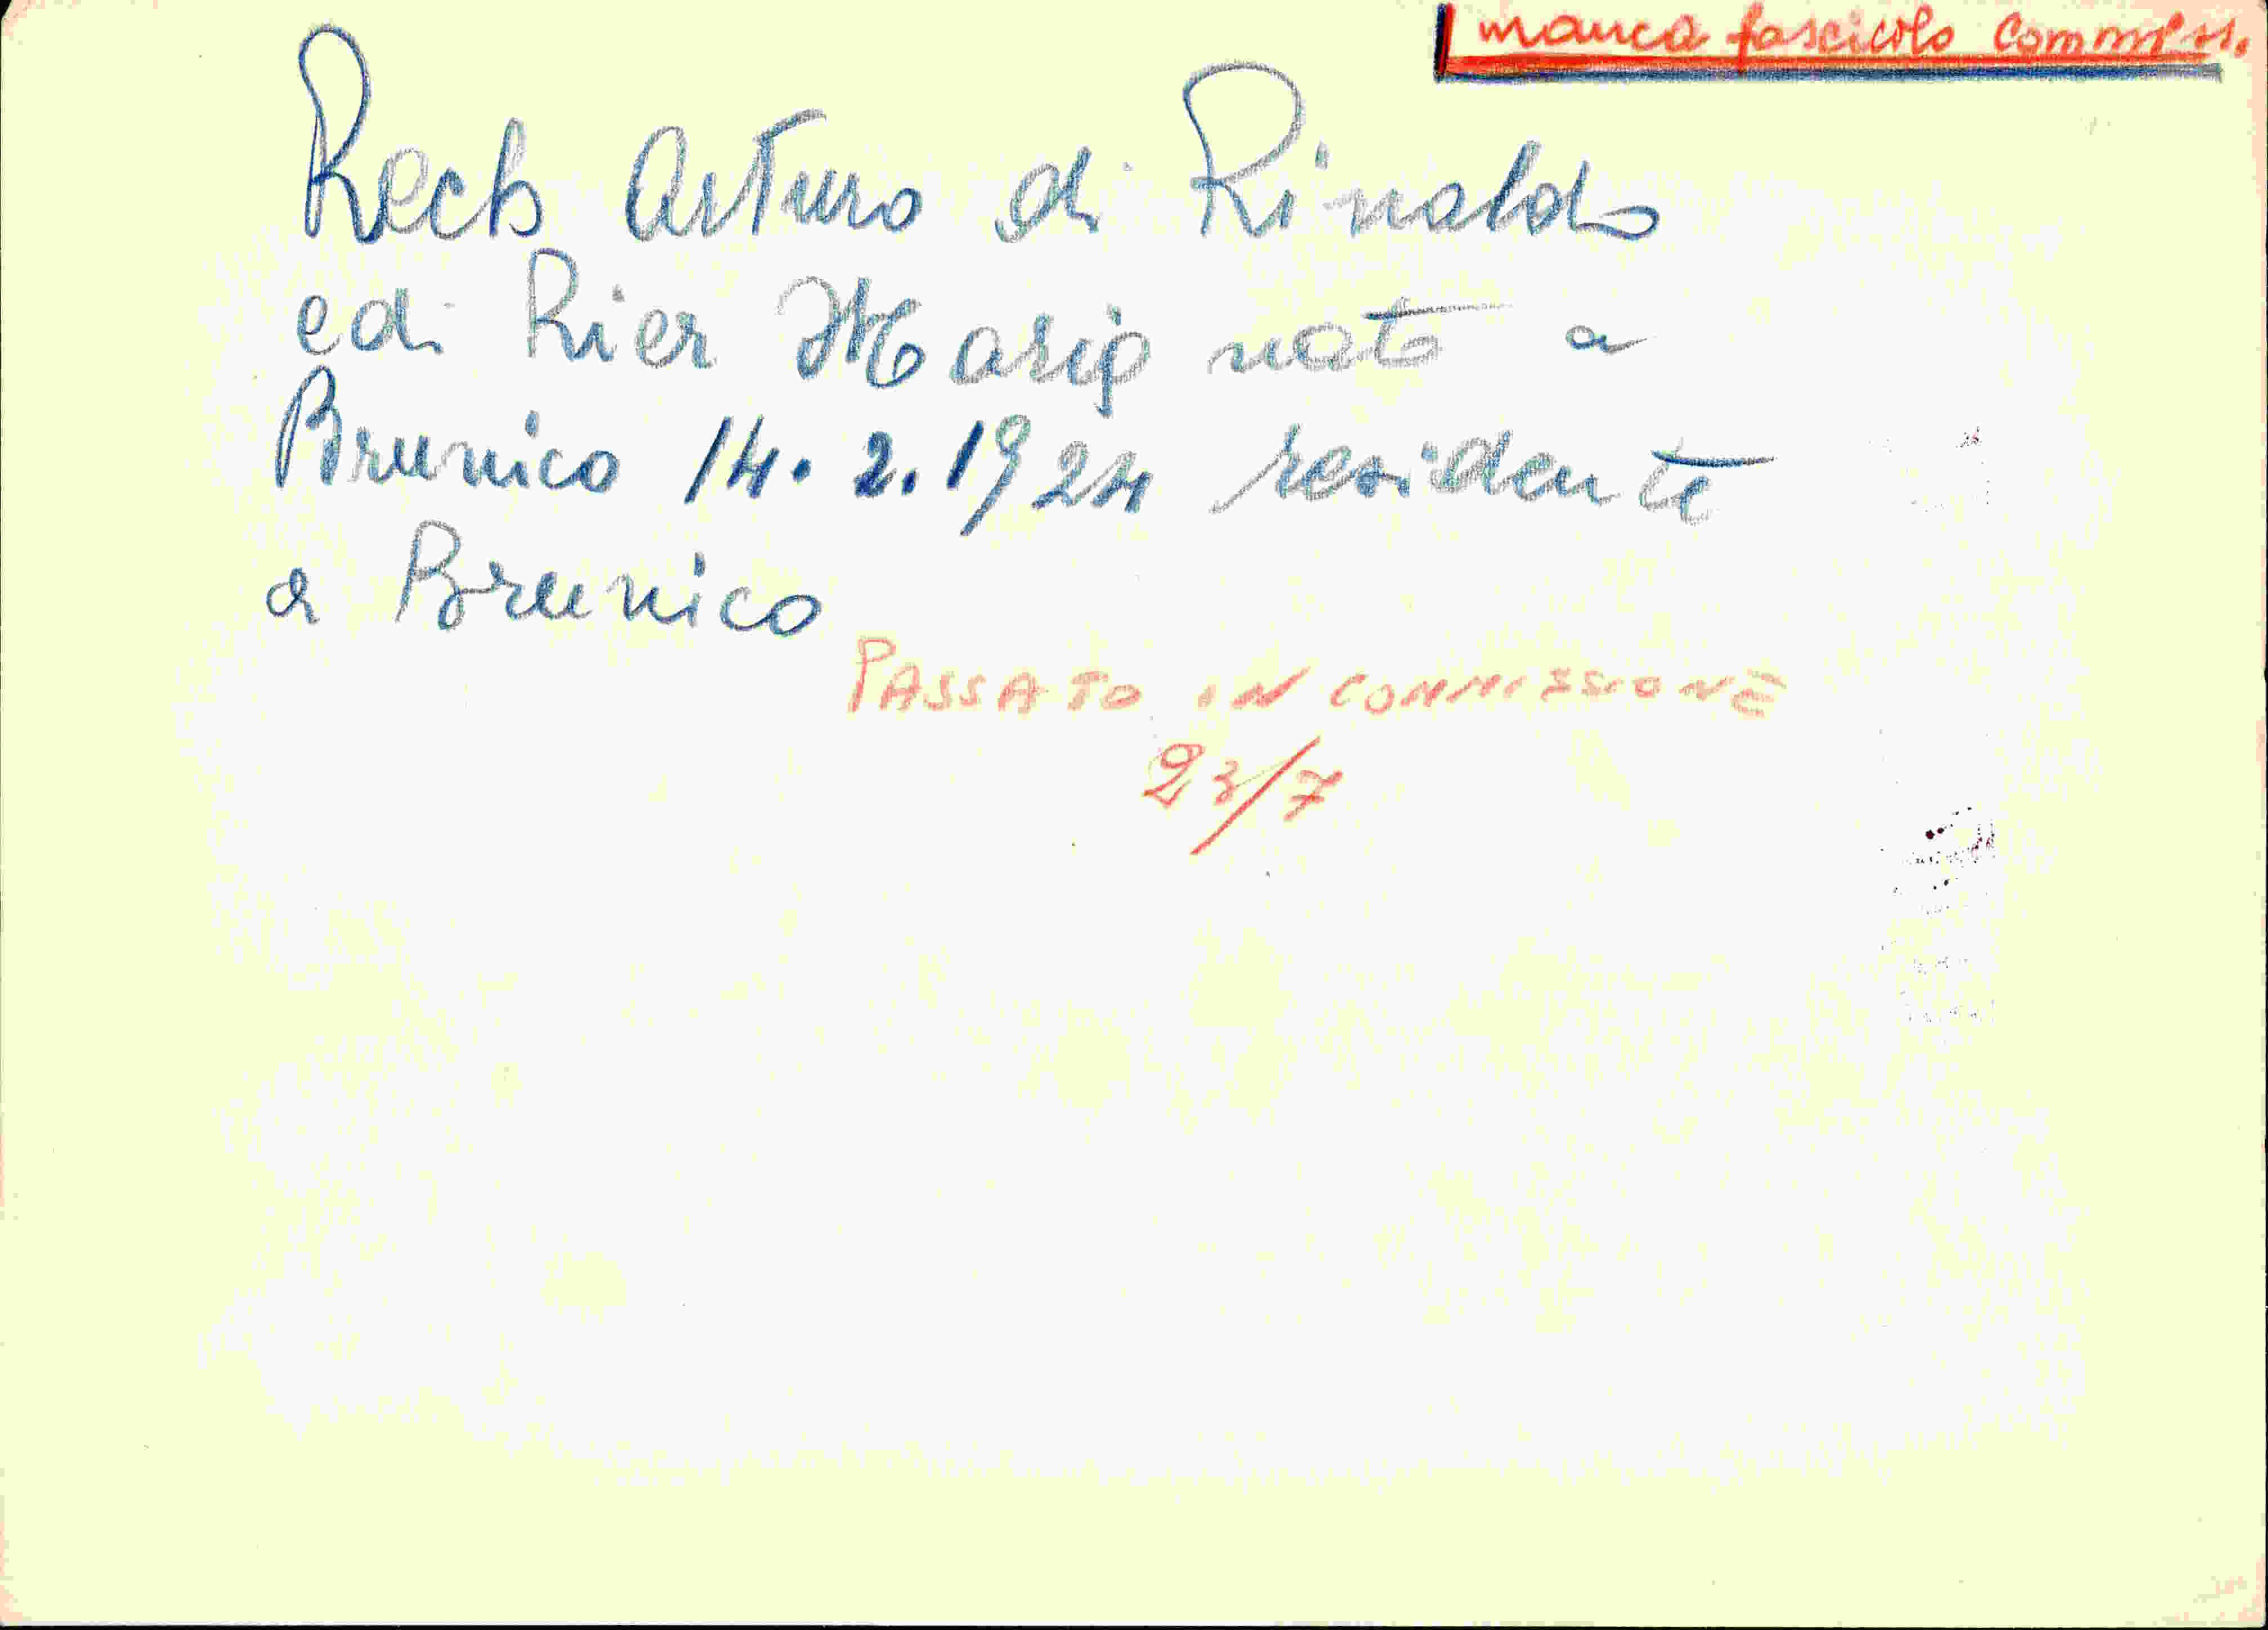 manca fascicolo Commiss.
Rech Arturo di Rinaldo
e di Rier Maria nato a
Brunico 14.2.1924 residente
a Brunico
PASSATO IN COMMISSIONE
23/7